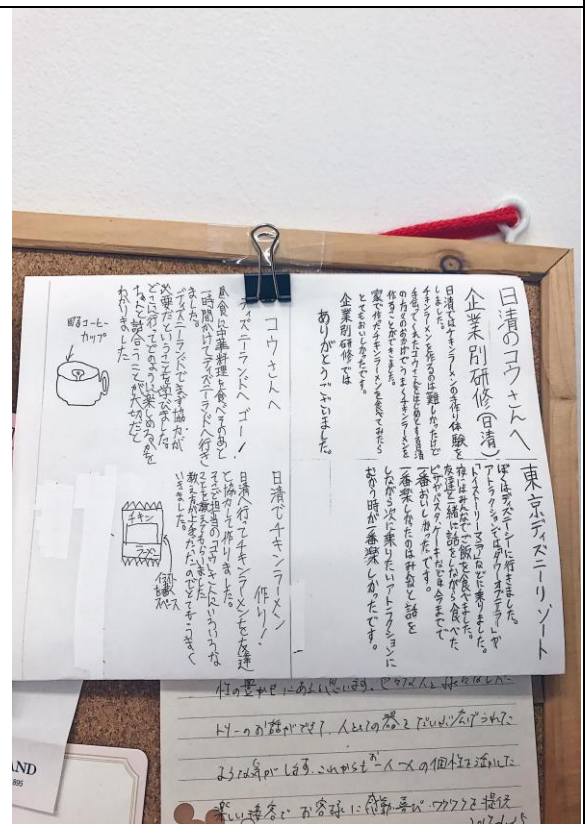 日清のコウさんへ
企業別研修(日清)
日清ではチキンラーメンの手作り体験を
しました。
チキンラーメンを作るのは難しかったけど
手伝ってくれたコウさんをはじめとする日清
の方々のおかげでうまくチキンラーメンを
作ることができました。
家で作ったチキンラーメンを食べてみたら
とてもおいしかったです。
企業別研修では
ありがとうございました。
東京ディズニーリゾート
ぼくはディズニーシーに行きました。
アトラクションでは「タワーオブテラー」や
「トイストーリーマニア」などに乗りました。
夜にはみんなでご飯を食べました。
友達と一緒に話をしながら食べた
ピザやパスタ、ケーキなどは今までで
一番おいしかったです。
一番楽しかったのはみんなと話を
しながら次に乗りたいアトラクションに
むかう時が一番楽しかったです。
コウさんへ
ディズニーランドへゴー!
昼食に中華料理を食べそのあと
一時間かけてディズニーランドへ行き
ました。
ディズニーランドでまず協力が
必要だということを学びました。
どこに行ってどのように楽しめるかを
なかまと話合うことが大切だと
わかりました
コーヒー
カップ
日清でチキンラーメン
作り!
日清へ行ってチキンラーメンを友達
と協力して作りました。
そこで担当のコウさんにいろいろな
ことを教えてもらいました
教え方が上手だったのでとてもうまく
いきました。
チキン
ラーメン
スペース
性の豊かせにあると思います。色々な人と様々なレパー
トリーのお話ができて、人としての器をだいぶ広げられた
ような気がします。これからもお一人一人の個性を活かした
楽しい接客で お客様に感動・喜び・ワクワクを提供
AND
895